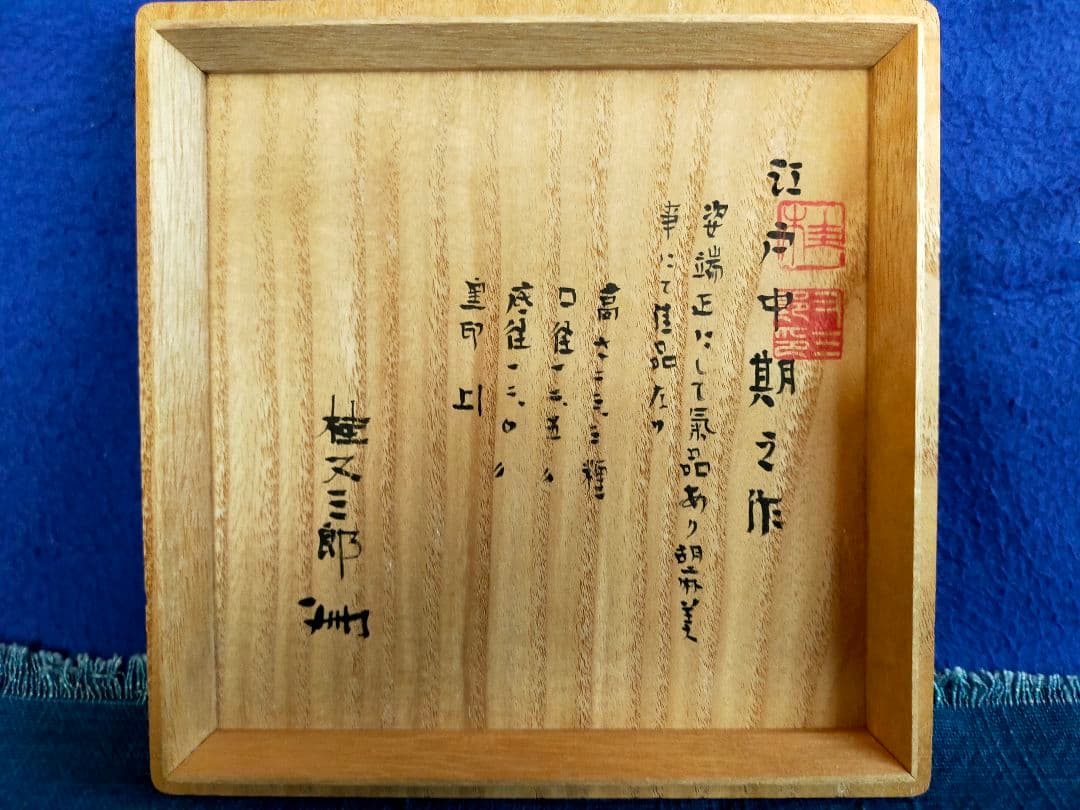 江戸中期之作
姿端正にして氣品あり胡麻美
事にて佳品たり
高さ二三、三糎
口径一二、五〃
底径一二、〇〃
窯印 上
桂又三郎
桂